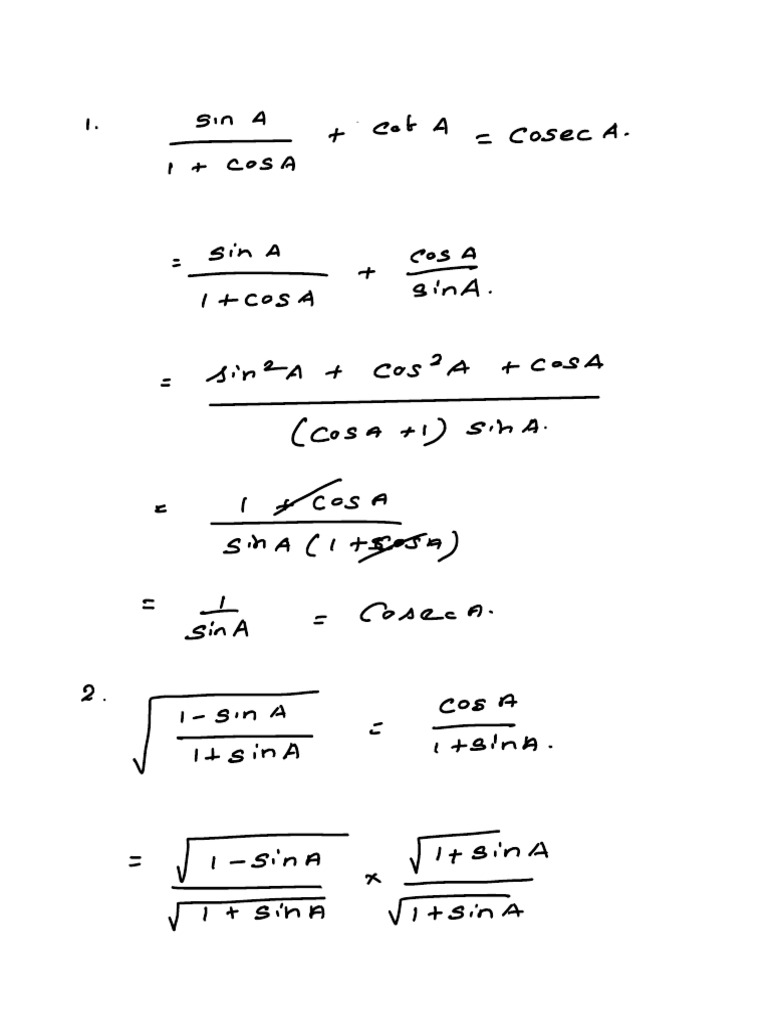 1. sin A / 1 + cos A + cot A = cosec A.
= sin A / 1 + cos A + cos A / sin A.
= sin²A + cos²A + cos A / (cos A + 1) sin A.
= 1 + cos A / sin A (1 + cos A)
= 1 / sin A = Cosec A.
2. √(1 - sin A / 1 + sin A) = cos A / 1 + sin A.
= √(1 - sin A) / √(1 + sin A) × √(1 + sin A) / √(1 + sin A)